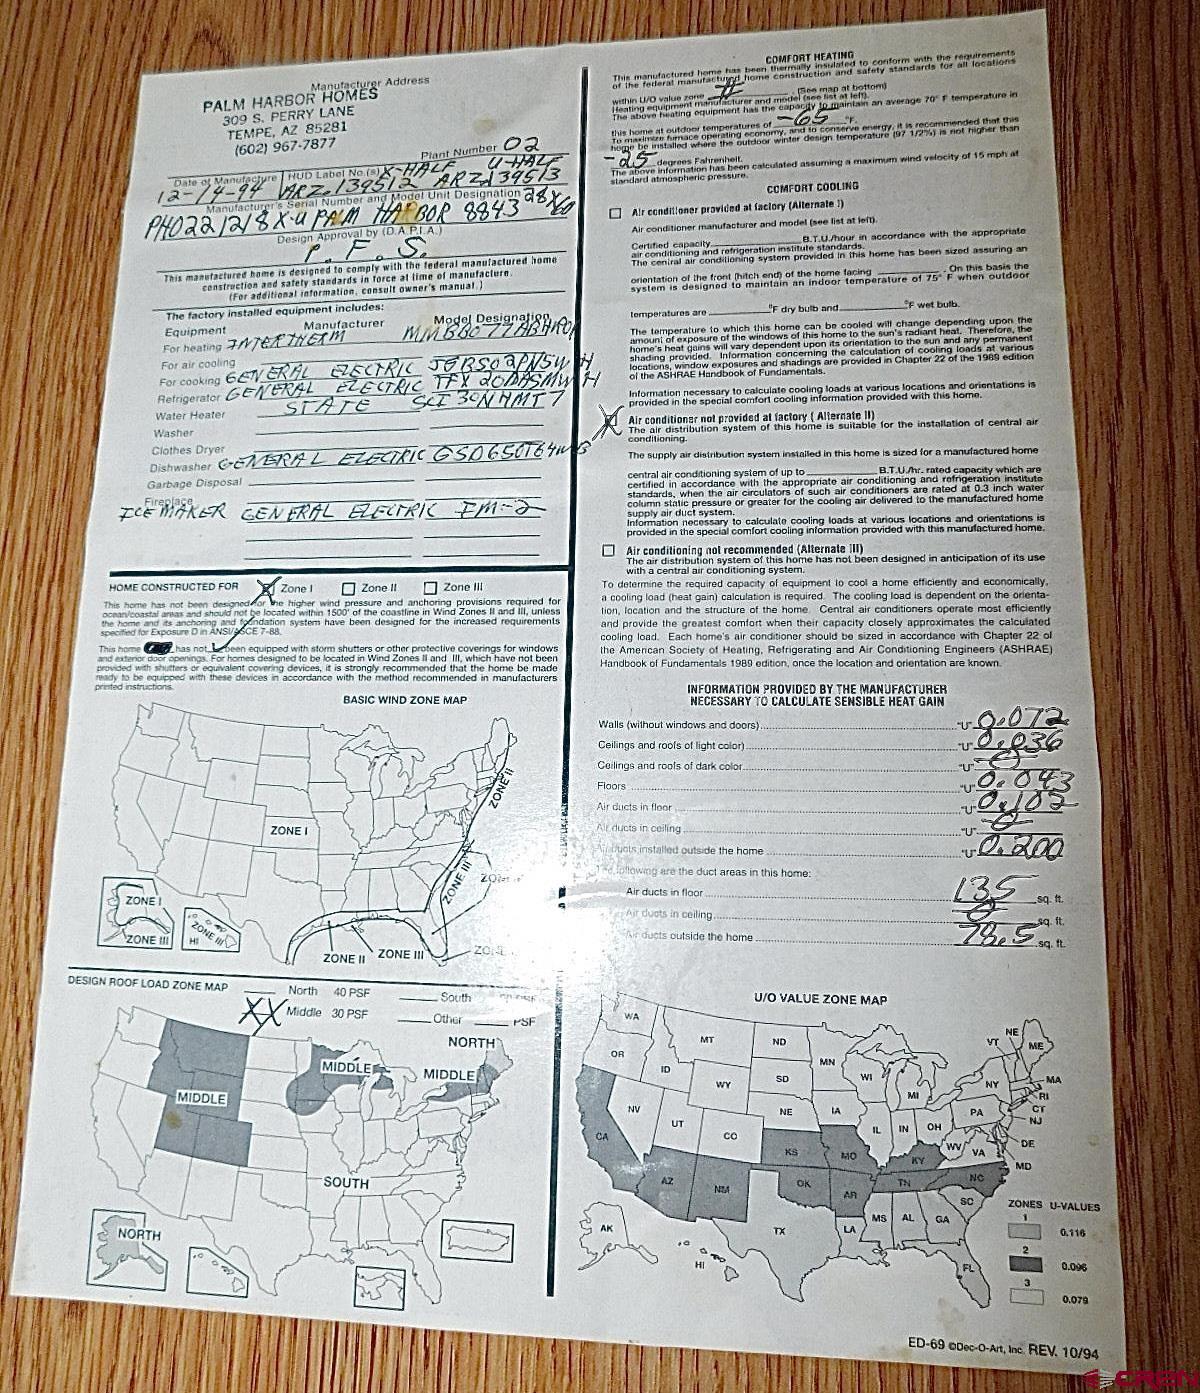 Manufacturer Address
PALM HARBOR HOMES
309 S. PERRY LANE
TEMPE, AZ 85281
(602) 967-7877
Plant Number 02
Date of Manufacture HUD Label No.(s) X-HALF U-HALF
12-14-94 ARZ.139512 ARZ.139513
Manufacturer's Serial Number and Model Unit Designation 28X60
PH0221218X-U PALM HARBOR 8843
Design Approval by (D.A.P.I.A.)
P. F. S.
This manufactured home is designed to comply with the federal manufactured home
construction and safety standards in force at time of manufacture.
(For additional information, consult owner's manual.)
The factory installed equipment includes:
Equipment Manufacturer Model Designation
For heating INTERTHERM
For air cooling
For cooking GENERAL ELECTRIC
Refrigerator GENERAL ELECTRIC
Water Heater STATE
Washer
Clothes Dryer
Dishwasher GENERAL ELECTRIC
Garbage Disposal
Fireplace
ICE MAKER GENERAL ELECTRIC IM-2
HOME CONSTRUCTED FOR X Zone I Zone II Zone III
This home has not been designed for the higher wind pressure and anchoring provisions required for
ocean/coastal areas and should not be located within 1500' of the coastline in Wind Zones II and III, unless
the home and its anchoring and foundation system have been designed for the increased requirements
specified for Exposure D in ANSI/ASCE 7-88.
This home has not been equipped with storm shutters or other protective coverings for windows
and exterior door openings. For homes designed to be located in Wind Zones II and III, which have not been
provided with shutters or equivalent covering devices, it is strongly recommended that the home be made
ready to be equipped with these devices in accordance with the method recommended in manufacturers
printed instructions.
BASIC WIND ZONE MAP
ZONE II
ZONE I
ZONE III
ZONE I
ZONE III
ZONE III
HI
ZONE II ZONE III
DESIGN ROOF LOAD ZONE MAP
North 40 PSF South
XX Middle 30 PSF Other PSF
NORTH
MIDDLE
MIDDLE
MIDDLE
SOUTH
NORTH
COMFORT HEATING
This manufactured home has been thermally insulated to conform with the requirements
of the federal manufactured home construction and safety standards for all locations
within U/O value zone II . (See map at bottom)
Heating equipment manufacturer and model (see list at left).
The above heating equipment has the capacity to maintain an average 70° F temperature in
this home at outdoor temperatures of -65 °F.
To maximize furnace operating economy, and to conserve energy, it is recommended that this
home be installed where the outdoor winter design temperature (97 1/2%) is not higher than
-25 degrees Fahrenheit.
The above information has been calculated assuming a maximum wind velocity of 15 mph at
standard atmospheric pressure.
COMFORT COOLING
Air conditioner provided at factory (Alternate I)
Air conditioner manufacturer and model (see list at left).
Certified capacity B.T.U./hour in accordance with the appropriate
air conditioning and refrigeration institute standards.
The central air conditioning system provided in this home has been sized assuming an
orientation of the front (hitch end) of the home facing . On this basis the
system is designed to maintain an indoor temperature of 75° F when outdoor
temperatures are °F dry bulb and °F wet bulb.
The temperature to which this home can be cooled will change depending upon the
amount of exposure of the windows of this home to the sun's radiant heat. Therefore, the
home's heat gains will vary dependent upon its orientation to the sun and any permanent
shading provided. Information concerning the calculation of cooling loads at various
locations, window exposures and shadings are provided in Chapter 22 of the 1989 edition
of the ASHRAE Handbook of Fundamentals.
Information necessary to calculate cooling loads at various locations and orientations is
provided in the special comfort cooling information provided with this home.
X Air conditioner not provided at factory ( Alternate II)
The air distribution system of this home is suitable for the installation of central air
conditioning.
The supply air distribution system installed in this home is sized for a manufactured home
central air conditioning system of up to B.T.U./hr. rated capacity which are
certified in accordance with the appropriate air conditioning and refrigeration institute
standards, when the air circulators of such air conditioners are rated at 0.3 inch water
column static pressure or greater for the cooling air delivered to the manufactured home
supply air duct system.
Information necessary to calculate cooling loads at various locations and orientations is
provided in the special comfort cooling information provided with this manufactured home.
Air conditioning not recommended (Alternate III)
The air distribution system of this home has not been designed in anticipation of its use
with a central air conditioning system.
To determine the required capacity of equipment to cool a home efficiently and economically,
a cooling load (heat gain) calculation is required. The cooling load is dependent on the orienta-
tion, location and the structure of the home. Central air conditioners operate most efficiently
and provide the greatest comfort when their capacity closely approximates the calculated
cooling load. Each home's air conditioner should be sized in accordance with Chapter 22 of
the American Society of Heating, Refrigerating and Air Conditioning Engineers (ASHRAE)
Handbook of Fundamentals 1989 edition, once the location and orientation are known.
INFORMATION PROVIDED BY THE MANUFACTURER
NECESSARY TO CALCULATE SENSIBLE HEAT GAIN
Walls (without windows and doors) "U" 0.072
Ceilings and roofs of light color) "U" 0.036
Ceilings and roofs of dark color "U" 0
Floors "U" 0.043
Air ducts in floor "U" 0.102
Air ducts in ceiling "U" 0
Air ducts installed outside the home "U" 0.200
The following are the duct areas in this home:
Air ducts in floor 135 sq. ft.
Air ducts in ceiling 0 sq. ft.
Air ducts outside the home 78.5 sq. ft.
U/O VALUE ZONE MAP
WA MT ND MN VT NE ME
OR ID WY SD WI MI NY MA
RI
CT
NJ
NV UT CO NE IA IL IN OH PA
DE
MD
CA KS MO KY WV VA
AZ NM OK AR TN NC
SC
TX LA MS AL GA
FL
AK HI
ZONES U-VALUES
1 0.116
2 0.096
3 0.079
ED-69 ©Dec-O-Art, Inc. REV. 10/94
CREN